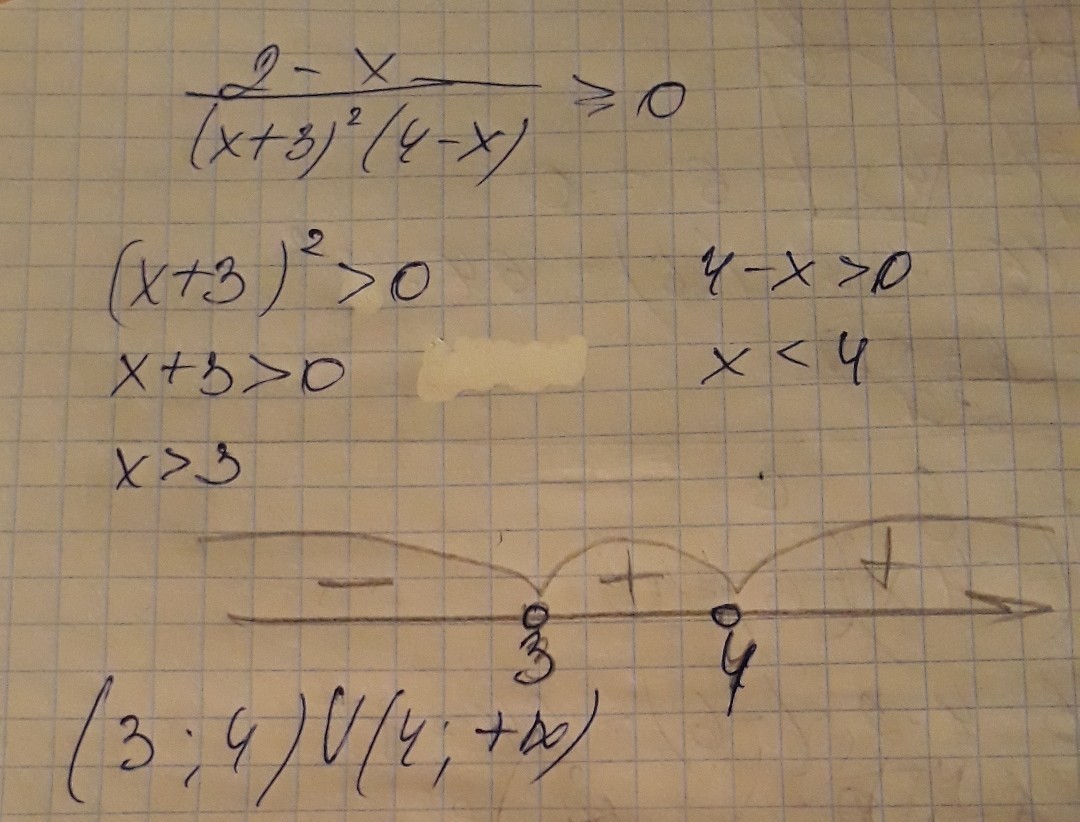 2 - x
(x+3)² (4-x)
≥ 0
(x+3)² > 0
4 - x > 0
x + 3 > 0
x < 4
x > 3
− + +
3 4
(3; 4) ∪ (4; +∞)